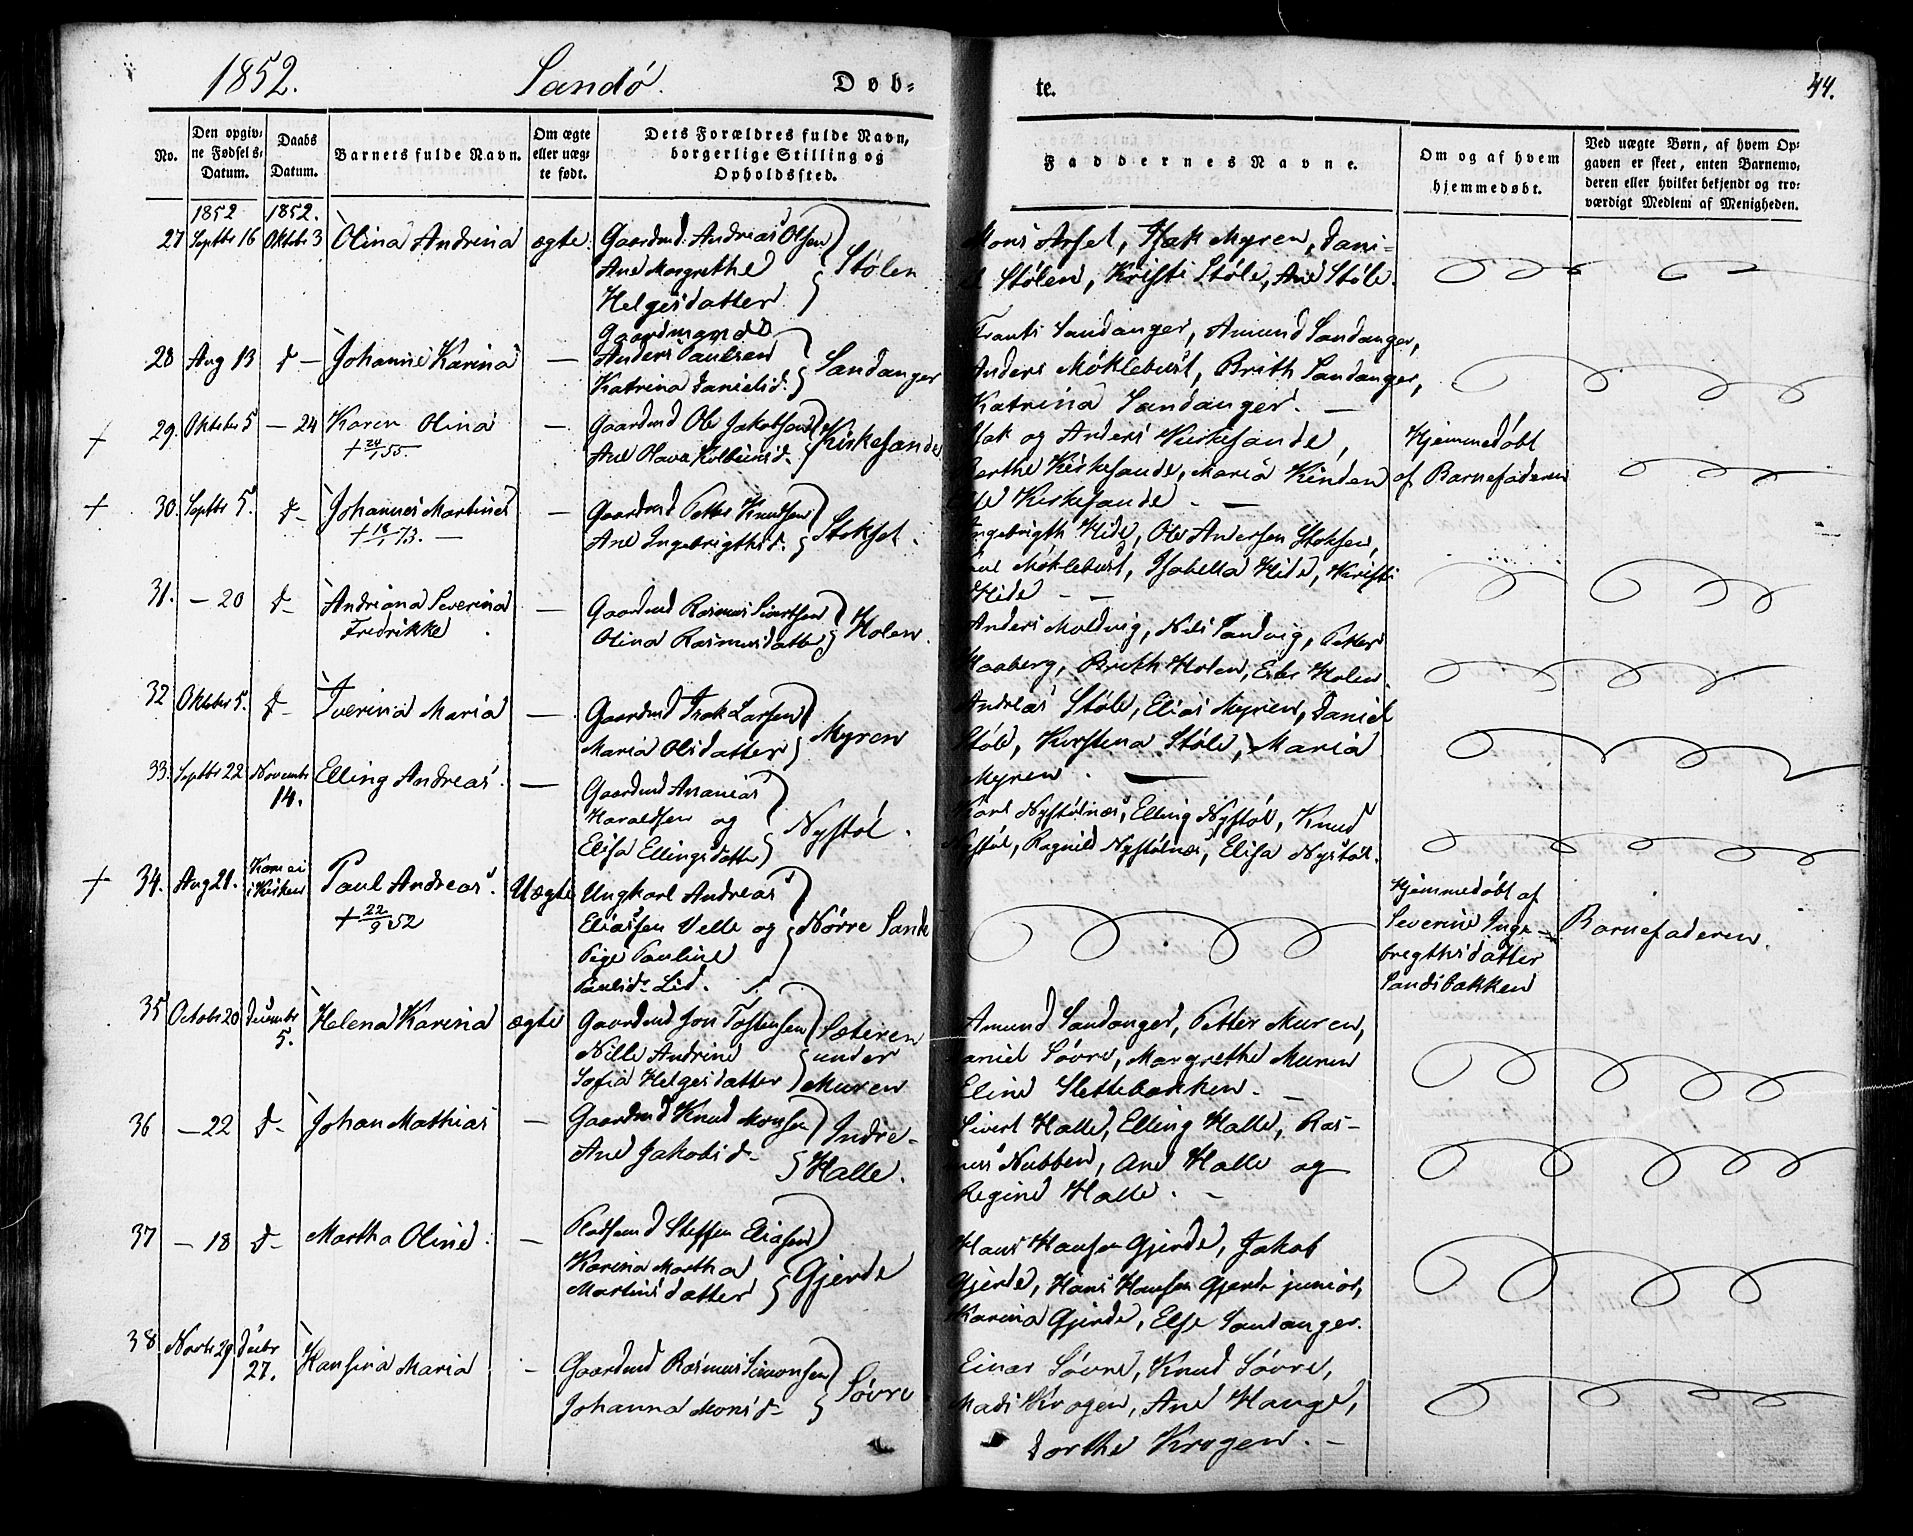 1852. Sandö. Döb-
te. 44.
No.
Den opgiv-
ne Fødsels-
Datum.
Daabs
Datum.
Barnets fulde Navn.
Om ægte
eller uæg-
te født.
Dets Forældres fulde Navn,
borgerlige Stilling og
Opholdssted.
Faddernes Navne.
Om og af hvem
hjemmedøbt.
Ved uægte Børn, af hvem Op-
gaven er skeet, enten Barnemo-
deren eller hvilket bekjendt og tro-
værdigt Medlem af Menigheden.
1852 1852.
27 Septbr 16 Oktbr 3 Olina Andrina ægte Gaardmd. Andreas Olsen
Ane Margrethe
Helgesdatter
Stølen
Mons Arset, Isak Myren, Dani-
el Stølen, Kristi Støle, Ane Støle.
28 Aug 13 d - Johanne Karina — Gaardmand
Anders Paulsen
Katrina Danielsd.
Sandanger
Frants Sandanger, Amund Sandanger,
Anders Möklebust, Brith Sandanger,
Katrina Sandanger. —
+ 29. Oktober 5 — 24 Karen Olina
+ 24/1 55.
— Gaardmd Ole Jakobsen
Ane Olava Kolbeinsd.
Kirkesande
Isak og Anders Kirkesande,
Berthe Kirkesande, Maria Kinden
Kirkesande —
Hjemmedöbt
af Barnefaderen
+ 30. Septbr 5. d- Johannes Martines
+ 18/1 73. —
— Gaardmd Petter Knudsen
Ane Ingebrigtsd.
Stokset.
Ingebrigth Hide, Ole Andersen Stoksen,
Möklebust, Isabella Hide, Kristi
Hide —
31. — 20 d- Andriana Severina
Fredrikke
— Gaardmd Rasmus Sivertsen
Olina Rasmusdatter
Holen.
Anders Moldvig, Nils Sandvig, Petter
Haaberg, Brith Holen, Holen.
32 Oktober 5. d- Iverina Maria — Gaardmd Isak Larsen
Maria Olsdatter
Myren
Andreas Støle, Elias Myren, Daniel
Støle, Kirstena Støle, Maria
Myren. —
33. Septbr 22 Novembr
14.
Elling Andreas. — Gaardmd Ananias
Haraldsen og
Elisa Ellingsdatter
Nystøl.
Nystølnæs, Elling Nystøl, Knud
Nystøl, Ragnild Nystølnæs, Elisa Nystøl.
+ 34. Aug 21. Kom ei
i Kirken
Paul Andreas.
+ 22/9 52
Uægte Ungkarl Andreas
Eliassen Velle og
Pige Pauline
Paulsd. Lid.
Nörre Sande
Hjemmedöbt af
Severine Inge-
bregthsdatter
Sandsbakken
Barnefaderen.
35 October 20 Decembr
5.
Helena Karina ægte Gaardmd Jon Tostensen
Nille Andrine
Sofia Helgesdatter
Sæteren
under
Muren
Amund Sandanger, Petter Muren,
Daniel Søvre, Margrethe Muren
Eline Slettebakken. —
36 — 22 d- Johan Mathias — Gaardmd Knud Monsen
Ane Jakobsd-
Indre-
Halle.
Sivert Halle, Elling Halle, Ras-
mus Nubben, Ane Halle og
Regine Halle. —
37 — 18 d- Martha Oline. — Pladsmd Steffen Eliasen
Karina Martha
Martinsdatter
Gjerde
Hans Hansen Gjerde, Jakob
Gjerde, Hans Hansen Gjerde junior,
Karina Gjerde, Else Sandanger.
38. Novbr 29 Decbr
27.
Hansina Maria — Gaardmd Rasmus Simonsen
Johanna Monsd-
Søvre
Einar Søvre, Knud Søvre,
Mads Krogen, Ane Hauge,
Dorthe Krogen. —